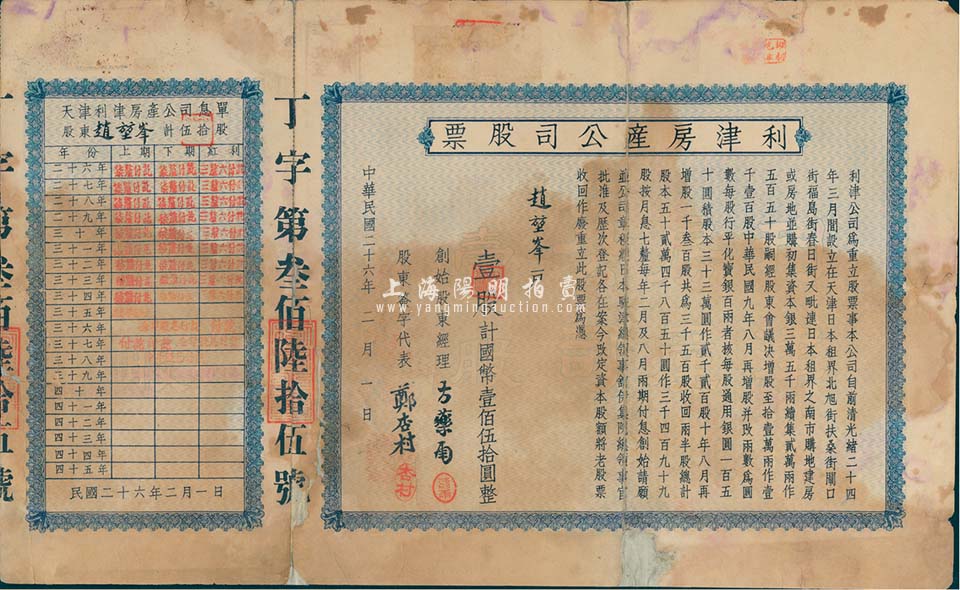 利津房產公司股票
利津公司爲重立股票事本公司自前清光緒二十四
年三月間設立在天津日本租界北旭街扶桑街閘口
街福島街春日街又毗連日本租界之南市購地建房
或房地並購初集資本銀三萬五千兩續集貳萬兩作
五百五十股嗣經股東會議決增股至拾壹萬兩作壹
千壹百股中華民國九年八月再增股并改兩數爲圓
數每股行平化寶銀百兩者核每股通用銀圓一百五
十圓積股本三十三萬圓作貳千貳百股十年八月再
增股一千叁百股共爲三千五百股收回兩半股總計
股本五十貳萬四千八百五十圓作三千四百九十九
股按月息七釐每年二月及八月兩期付息創始請願
並公司章程經日本駐津總領事館併集閱總領事官
批准及歷次登記各在案今改定資本股額將老股票
收回作廢重立此股票爲憑
趙堃峯
壹股計國幣壹佰伍拾圓整
創始股東經理 方藥雨
股東簽字代表 鄭杏村
杏村
中華民國二十六年一月一日
丁字第叁佰陸拾伍號
天津利津房產公司息單
股東趙堃峯計伍拾股
年份 上期 下期 紅利
二十六年 柒釐付訖 柒釐付訖 三釐六付訖
二十七年 柒釐付訖 柒釐付訖 三釐六付訖
二十八年 柒釐付訖 柒釐付訖 三釐六付訖
二十九年 柒釐付訖 柒釐付訖 三釐六付訖
三十年
三十一年
三十二年
三十三年
三十四年
三十五年
三十六年
三十七年
三十八年
三十九年
四十年
四十一年
四十二年
四十三年
四十四年
四十五年
民國二十六年二月一日
丁字第叁佰陸拾伍號
上海陽明拍賣
www.yangmingauction.com